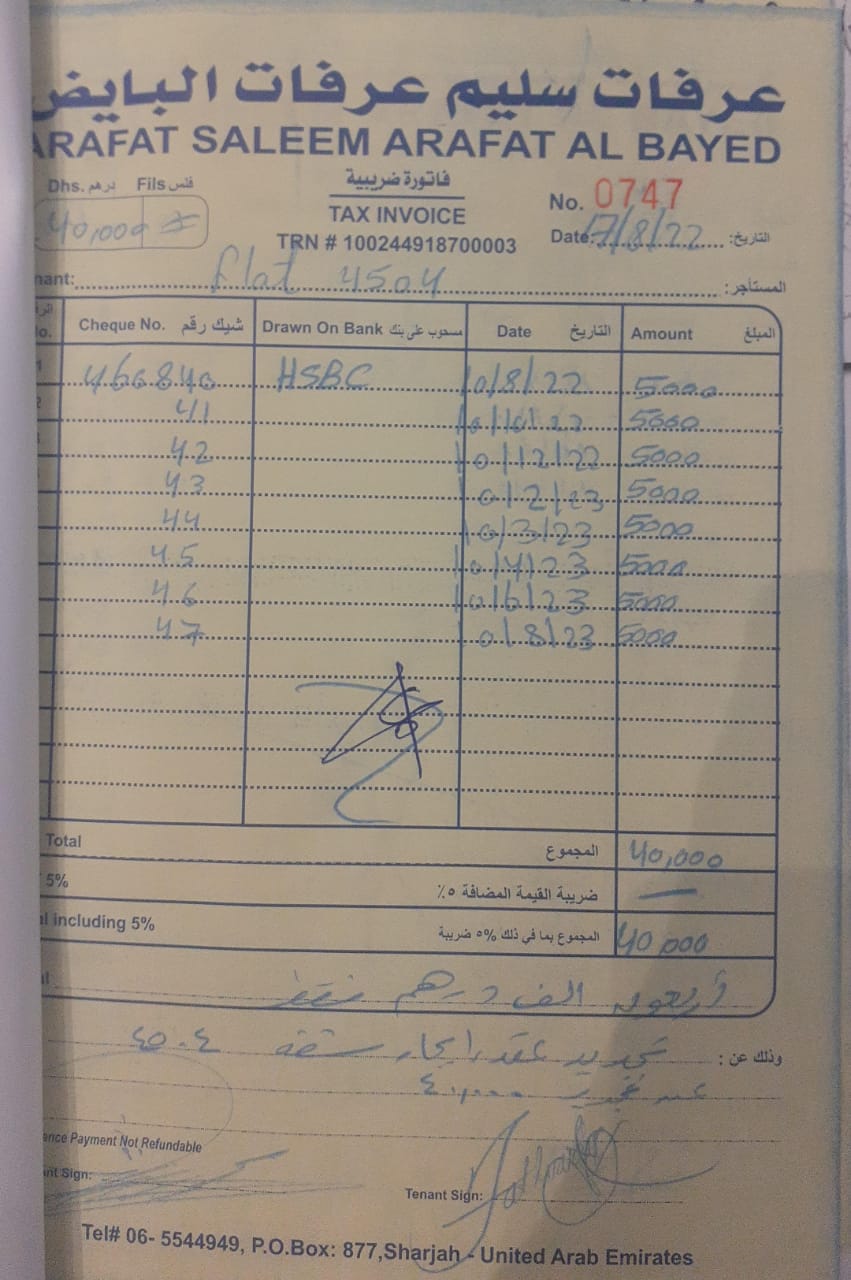 عرفات سليم عرفات البايض
ARAFAT SALEEM ARAFAT AL BAYED
Dhs. درهم Fils فلس
40,000
فاتورة ضريبية
TAX INVOICE
TRN # 100244918700003
No. 0747
Date: 17/8/22 التاريخ:
nant: flat 4504 المستأجر:
o. Cheque No. شيك رقم Drawn On Bank مسحوب على بنك Date التاريخ Amount المبلغ
1 460840 HSBC 10/8/22 5000
2 41 10/10/22 5000
42 10/12/22 5000
43 10/2/23 5000
44 10/3/23 5000
45 10/4/23 5000
46 10/6/23 5000
47 10/8/23 5000
Total المجموع 40,000
5% ضريبة القيمة المضافة ٥٪ —
l including 5% المجموع بما في ذلك ٥% ضريبة 40 000
أربعون الف درهم فقط
وذلك عن : تجديد عقد إيجار شقة ٤٥٠٤
٤٠,٠٠٠
ence Payment Not Refundable
nt Sign:
Tenant Sign:
Tel# 06- 5544949, P.O.Box: 877,Sharjah - United Arab Emirates